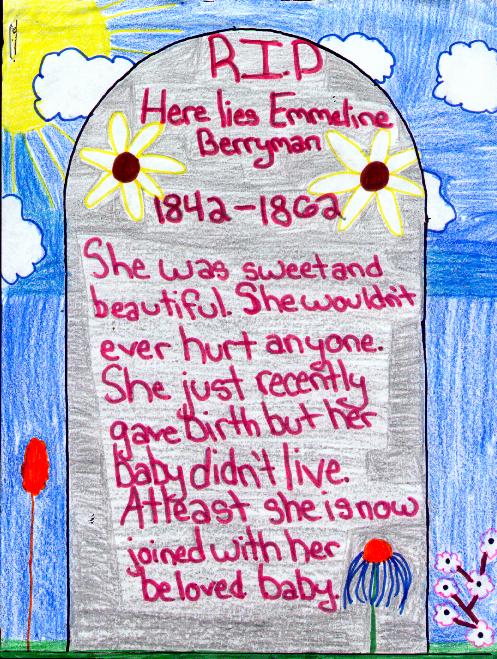 R.I.P
Here lies Emmeline
Berryman
1842-1862
She was sweet and
beautiful. She wouldn't
ever hurt anyone.
She just recently
gave birth but her
baby didn't live.
Atleast she is now
joined with her
beloved baby.